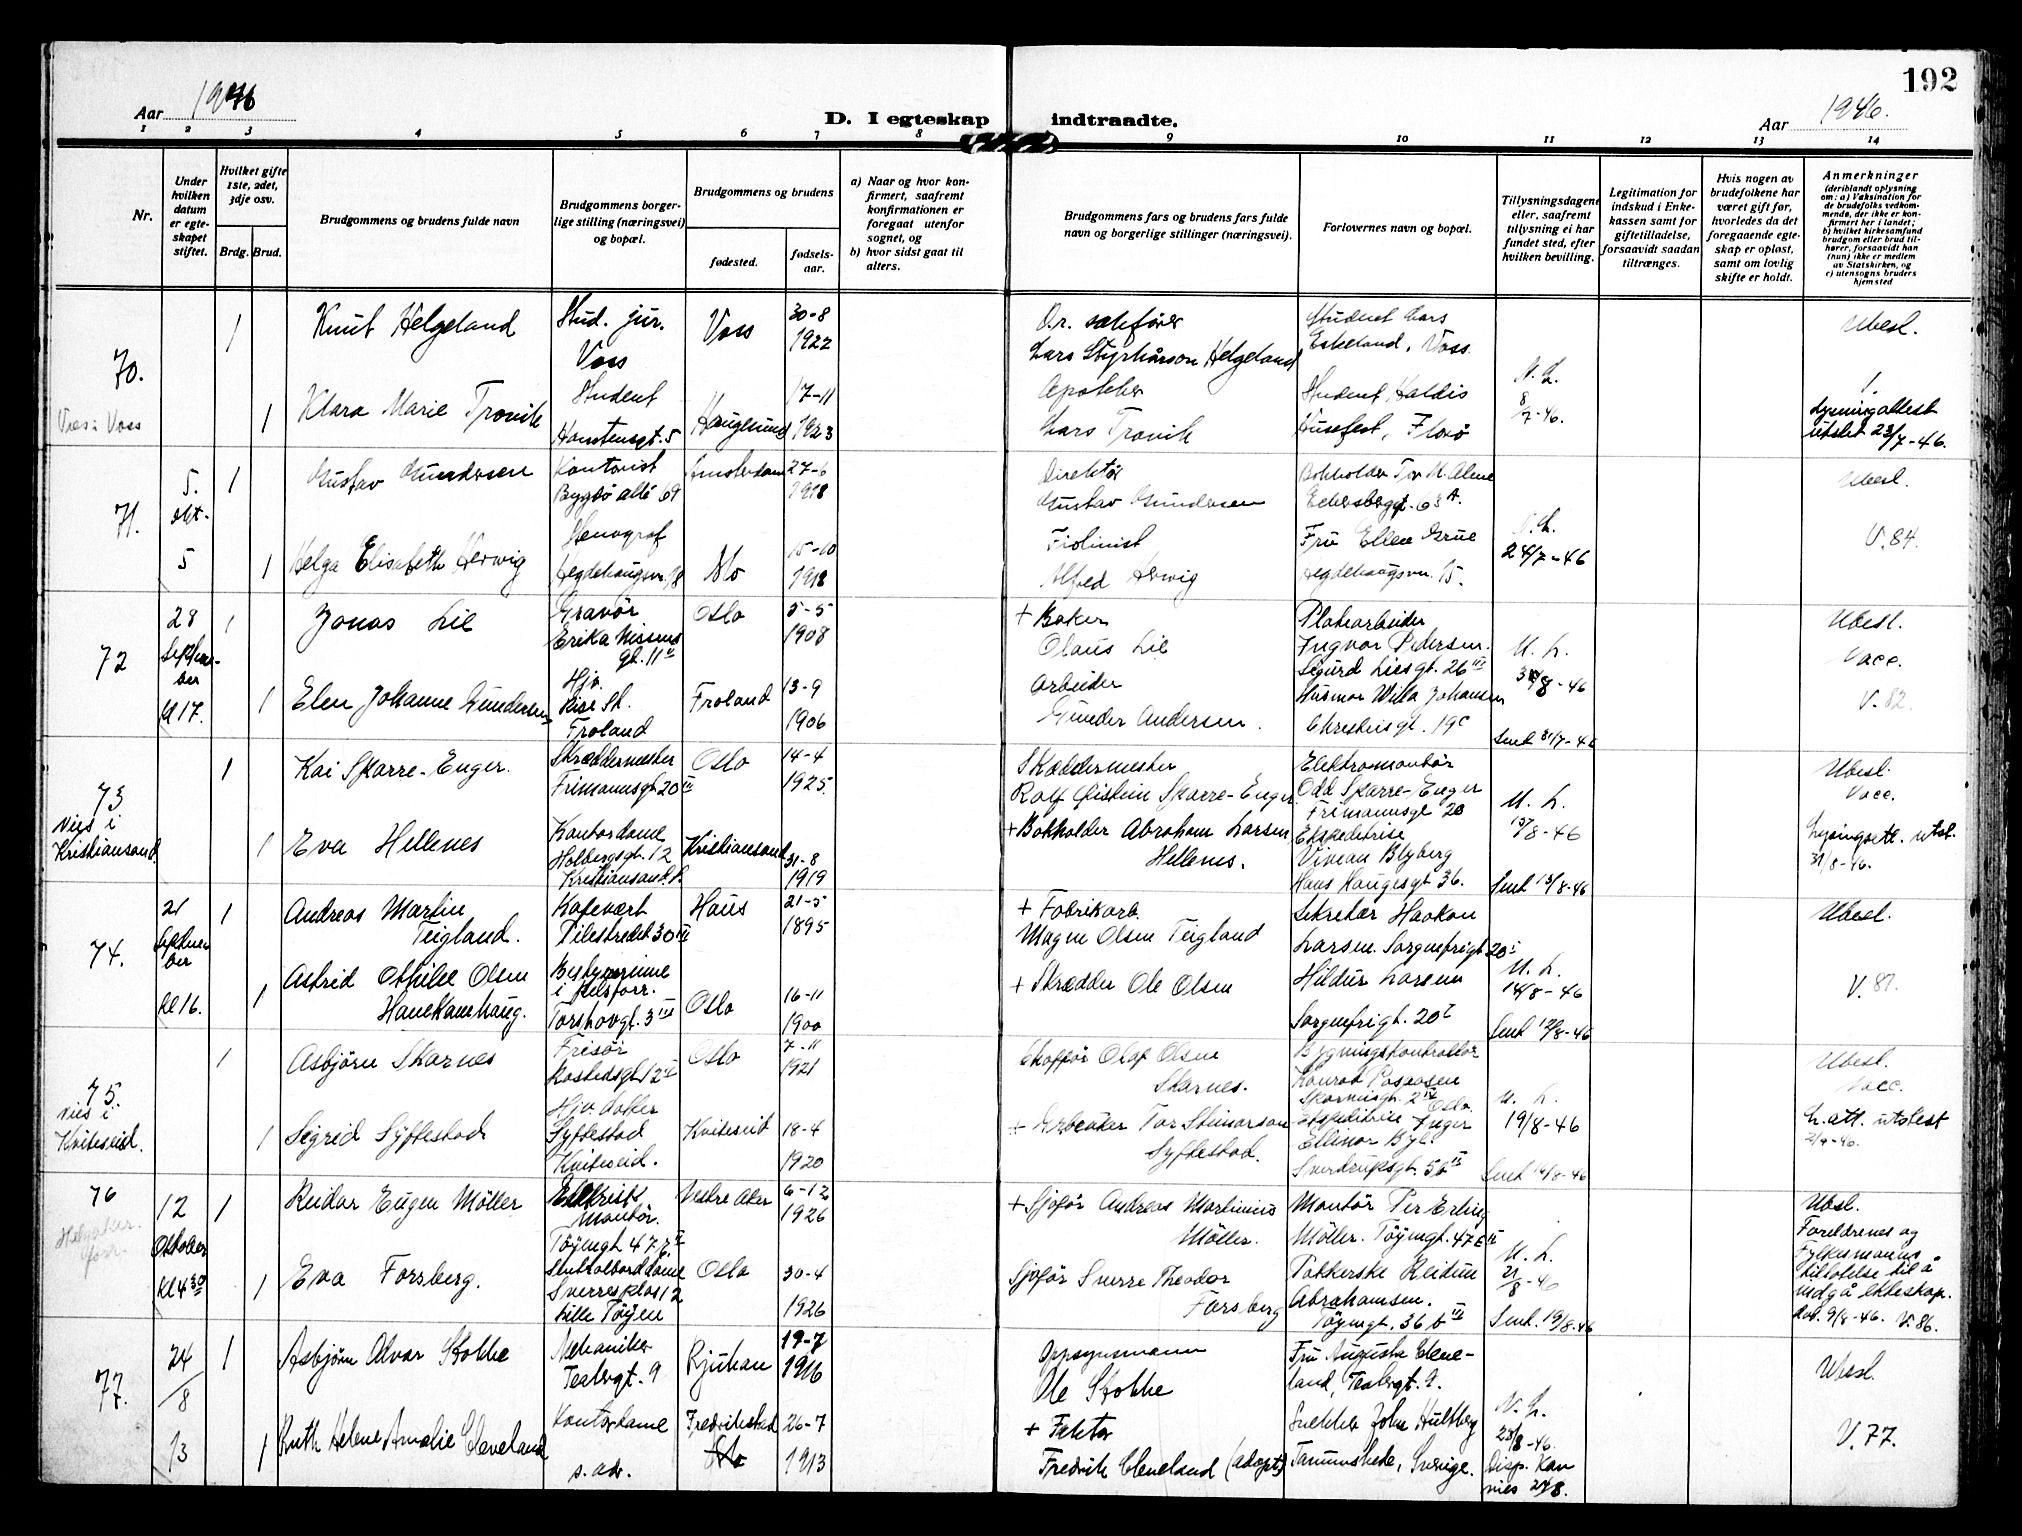 192
Aar 1946
D. I egteskap indtraadte.
Aar 1946.
1 2 3 4 5 6 7 8 9 10 11 12 13 14
Nr.
Under hvilken datum er egteskapet stiftet.
Hvilket gifte 1ste, 2det, 3dje osv.
Brdg. Brud.
Brudgommens og brudens fulde navn
Brudgommens borgerlige stilling (næringsvei) og bopæl.
Brudgommens og brudens
fødested.
fødselsaar.
a) Naar og hvor konfirmert, saafremt konfirmationen er foregaat utenfor sognet, og
b) hvor sidst gaat til alters.
Brudgommens fars og brudens fars fulde navn og borgerlige stillinger (næringsvei).
Forlovernes navn og bopæl.
Tillysningsdagene eller, saafremt tillysning ei har fundet sted, efter hvilken bevilling.
Legitimation for indskud i Enkekassen samt for giftetilladelse, forsaavidt saadan tiltrænges.
Hvis nogen av brudefolkene har været gift før, hvorledes da det foregaaende egteskap er opløst, samt om lovlig skifte er holdt.
Anmerkninger
(deriblandt oplysning om: a) Vaksination for de brudefolks vedkommende, der ikke er konfirmert her i landet; b) hvilket kirkesamfund brudgom eller brud tilhører, forsaavidt han (hun) ikke er medlem av Statskirken, og c) utensogns bruders hjemsted
70.
Vies i Voss
1 Knut Helgeland
Stud. jur.
Voss
Voss
30-8
1922
O.r. sakfører
Lars Styrkårson Helgeland
Student Lars
Eskeland, Voss.
Ubesl.
1 Klara Marie Trovik
Student
Homtensgt. 5
Haugesund
17-11
1923
Apoteker
Lars Trovik
Student Haldis
Husefest, Florø
N. L.
8/7-46.
1.
Lysningattest
utstet 23/7-46.
71.
5.
okt.
5
1 Gustav Gundersen
Kontorist
Bygdø allé 69
Amsterdam
27-6
1918
Direktør
Gustav Gundersen
Eilersbergt. 63 A.
Ubesl.
1 Helga Elisabeth Herwig
Stenograf
Hegdehaugsv. 18
Oslo
15-10
1918
Fiolinist
Alfred Herwig
Fru Ellen Grue
Hegdehaugsvn. 15.
N. L.
24/7-46
V. 84.
72
28
September
Kl 17.
1 Jonas Lie
Gravør
Erika Nissens
gt. 11 II
Oslo
5-5
1908
+ Baker
Olaus Lie
Platearbeider
Ingvar Pedersen.
Sigurd Liesgt. 26 III
U. L.
Ubesl.
Vacc.
1 Elen Johanne Gundersen
Hjv.
Rise st.
Froland
Froland
13-9
1906
Arbeider
Gunder Andersen.
Husmor Willa Johansen
Chresties gt. 19 c
Sent 31/7-46
V. 82.
73
Vies i
Kristiansand
1 Kai Sparre-Enger.
Skreddermester
Frimannsgt 20 IV
Oslo
14-4
1925.
Skreddermester
Rolf Øistein Sparre-Enger
Elektromontør
Odd Sparre-Enger
Frimannsgt 20
U. L.
Ubesl.
Vacc.
1 Eva Hellenes
Kontordame
Holbergsgt. 12
Kristiansand S.
Kristiansand
31-8
1919
+ Bokholder Abraham Larsen
Hellenes.
Ekspeditrise
Vivian Blyberg
Hans Haugesgt 36.
Sent 13/8-46
Lysingsatt. utst.
31/8-46.
74.
21
September
Kl 16.
1 Andreas Martin
Teigland.
Kafevert
Pilestredet 30 III
Haus
21-5
1895
+ Fabrikarb.
Magne Olsen Teigland
Sekretær Haakon
Larsen. Sorgenfrigt 20 I
Ubesl.
1 Astrid Othilie Olsen
Hanekamhaug.
Bestyrerinne
i pelsforr.
Torshovgt. 3 III
Oslo
16-11
1900
+ Skredder Ole Olsen
Hildur Larsen
Sorgenfrigt. 20 I
U. L.
14/8-46
Sent 12/8-46
V. 81.
75.
Vies i
Kviteseid.
1 Asbjörn Skarnes
Frisør
Rostedsgt 12 II
Oslo
7-11
1921
Chaffør Olaf Olsen
Skarnes.
Bygningskontrollør
Konrad Paspasen
Oslo
Ubesl.
Vacc.
1 Sigrid Syftestad
Hjv. datter
Syftestad
Kviteseid.
Kviteseid
18-4
1920
Tor Steinarson
Syftestad.
Ekspeditrise Inger
Ellinor Bye.
Sverdrupsgt. 5b IV
U. L.
19/8-46
Sent 14/8-46
L. att. utstest
76
12
Oktober
Kl 4 30
1 Reidar Eugen Möller
montør.
Töyengt 47
Vestre Aker
6-12
1926
+ Sjøfør Andreas Martinius
Möller.
Montør Per Erling
Möller. Töyengt. 47 c IV
Ubesl.
Foreldrenes og
Fylkesmanns
tillatelse til å
inngå ekteskap.
dat. 9/8-46. V. 86.
1 Eva Forsberg.
Sverresplas 12
Lille Töyen
Oslo
30-4
1926
Sjøfør Sverre Theodor
Forsberg
Pakkerske Reidun
Abrahamsen.
Töyengt. 36 b III
U. L.
21/8-46
Sent. 19/8-46
77.
24/8
13
1 Asbjørn Alvar Stokke
Mekaniker
Tesbergt. 9
Rjukan
19-7
1916
Oppsynsmann
Ole Stokke
Fru Augusta Cleveland, Tesbergt. 9.
Ubesl.
1 Ruth Helene Amalie Cleveland
Kontordame
s. adr.
Fredrikstad
26-7
1913
+ Faktor
Fredrik Cleveland (adopt.)
Snekker John Hultberg
Tanumshede, Sverige.
N. L.
23/8-46.
V. 77.